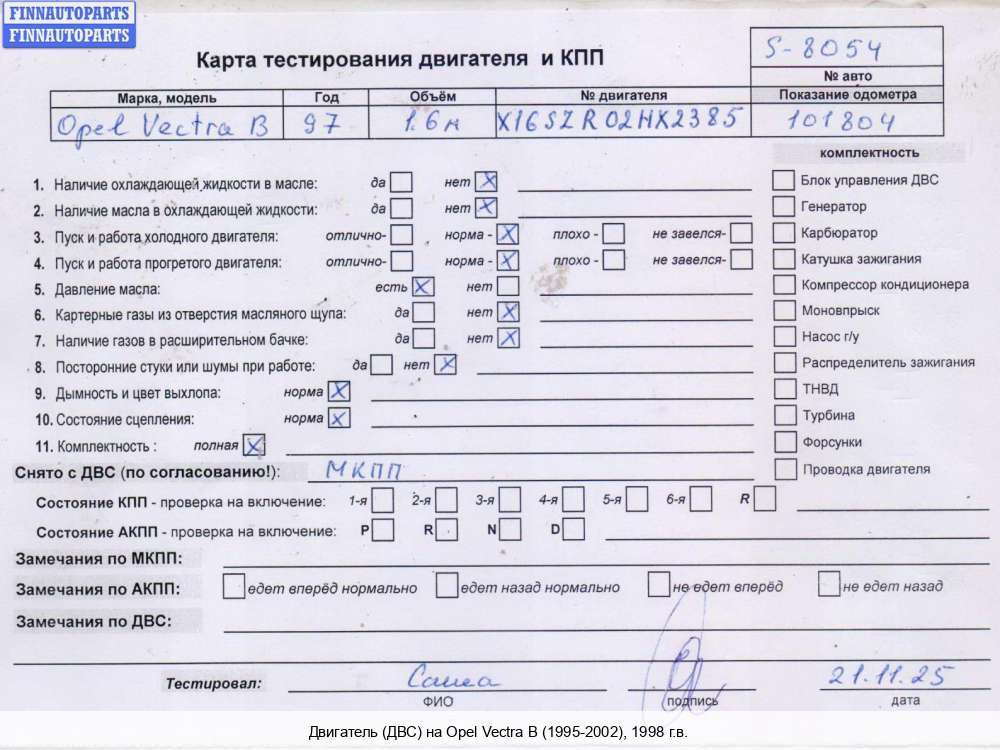 FINNAUTOPARTS
FINNAUTOPARTS
Карта тестирования двигателя и КПП
S-8054
№ авто
Марка, модель Год Объём № двигателя Показание одометра
Opel Vectra B 97 1.6 м X16SZR02HX2385 101804
комплектность
1. Наличие охлаждающей жидкости в масле: да нет X
2. Наличие масла в охлаждающей жидкости: да нет X
3. Пуск и работа холодного двигателя: отлично- норма - X плохо - не завелся-
4. Пуск и работа прогретого двигателя: отлично- норма - X плохо - не завелся-
5. Давление масла: есть X нет
6. Картерные газы из отверстия масляного щупа: да нет X
7. Наличие газов в расширительном бачке: да нет X
8. Посторонние стуки или шумы при работе: да нет X
9. Дымность и цвет выхлопа: норма X
10. Состояние сцепления: норма X
11. Комплектность : полная X
Блок управления ДВС
Генератор
Карбюратор
Катушка зажигания
Компрессор кондиционера
Моновпрыск
Насос г/у
Распределитель зажигания
ТНВД
Турбина
Форсунки
Проводка двигателя
Снято с ДВС (по согласованию!): МКПП
Состояние КПП - проверка на включение: 1-я 2-я 3-я 4-я 5-я 6-я R
Состояние АКПП - проверка на включение: P R N D
Замечания по МКПП:
Замечания по АКПП: едет вперёд нормально едет назад нормально не едет вперёд не едет назад
Замечания по ДВС:
Тестировал: Саша 21.11.25
ФИО подпись дата
Двигатель (ДВС) на Opel Vectra B (1995-2002), 1998 г.в.